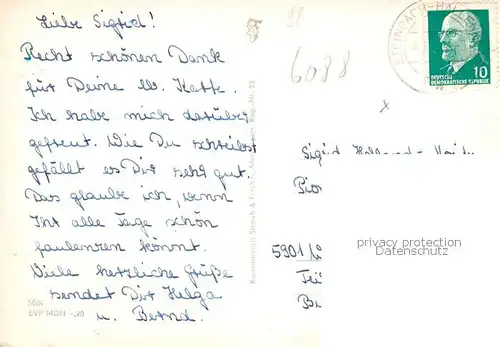 Liebe Sigrid!
Recht schönen Dank
für Deine lb. Karte.
Ich habe mich darüber
gefreut. Wie Du schreibst
gefällt es Dir sehr gut.
Das glaube ich, wenn
Ihr alle Tage schön
faulenzen könnt.
Viele herzliche Grüße
sendet Dir Helga
u. Bernd.
5684
EVP MDN -,20
98
6088
STEINBACH-HA
10
DEUTSCHE
DEMOKRATISCHE REPUBLIK
x
Sigrid
5901
privacy protection
Datenschutz